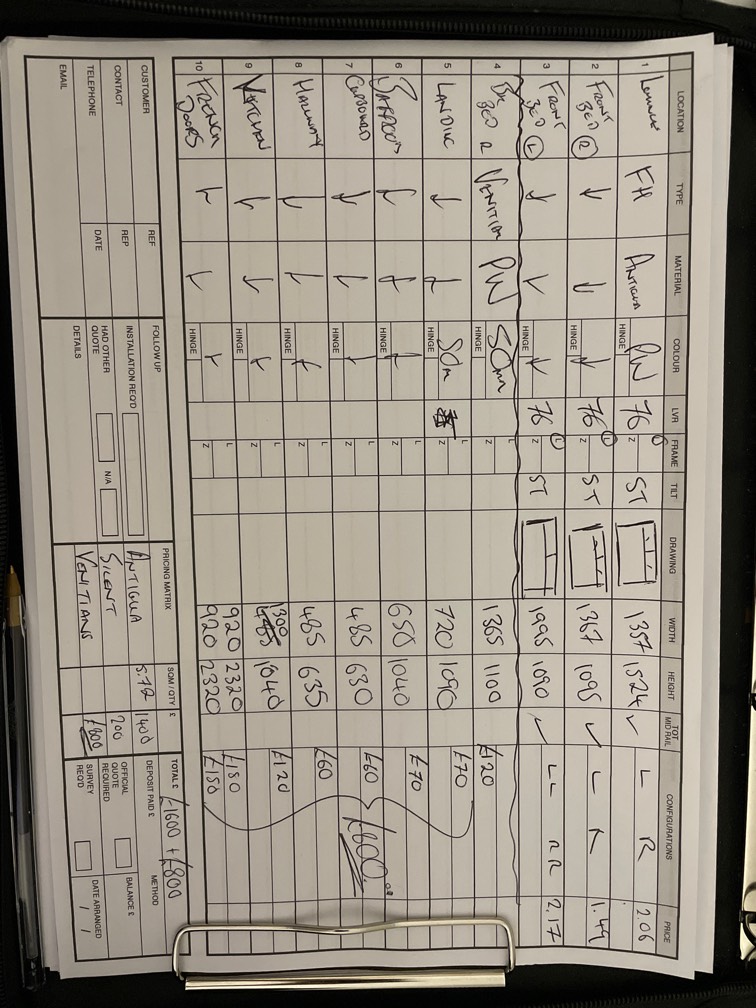 LOCATION TYPE MATERIAL COLOUR LVR FRAME TILT DRAWING WIDTH HEIGHT TOT MID RAIL CONFIGURATIONS PRICE
1 FH ANTIGUA PW HINGE 76 L Z ST 1357 1524 ✓ L R 2.06
2 FRONT BED R ↓ ↓ HINGE ↓ 76 L Z ST 1367 1095 ✓ L R 1.49
3 FRONT BED L ↓ ↓ HINGE ↓ 76 L Z ST 1995 1090 ✓ LL RR 2.17
4 BED 2 VENITIAN PW HINGE 50mm L Z 1365 1100 £120
5 LANDING ↓ ↓ HINGE 50m L Z 720 1090 £70
6 BATHROOM ↓ ↓ HINGE ↓ L Z 650 1040 £70
7 CUPBOARD ↓ ↓ HINGE ↓ L Z 485 630 £60
8 HALLWAY ↓ ↓ HINGE ↓ L Z 485 635 £60
9 KITCHEN ↓ ↓ HINGE ↓ L Z 1300 1040 £120
10 FRENCH DOORS ↓ ↓ HINGE ↓ L Z 920 2320 £180
920 2320 £180
£800.00
CUSTOMER REF
CONTACT REP
TELEPHONE DATE
EMAIL
FOLLOW UP
INSTALLATION REQ'D
HAD OTHER QUOTE N/A
DETAILS
PRICING MATRIX SQM / QTY £
ANTIGUA 5.72 1400
SILENT 200
VENITIANS £800
TOTAL £ £1600 + £800 METHOD
DEPOSIT PAID £ BALANCE £
OFFICIAL QUOTE REQUIRED DATE ARRANGED
SURVEY REQ'D / /